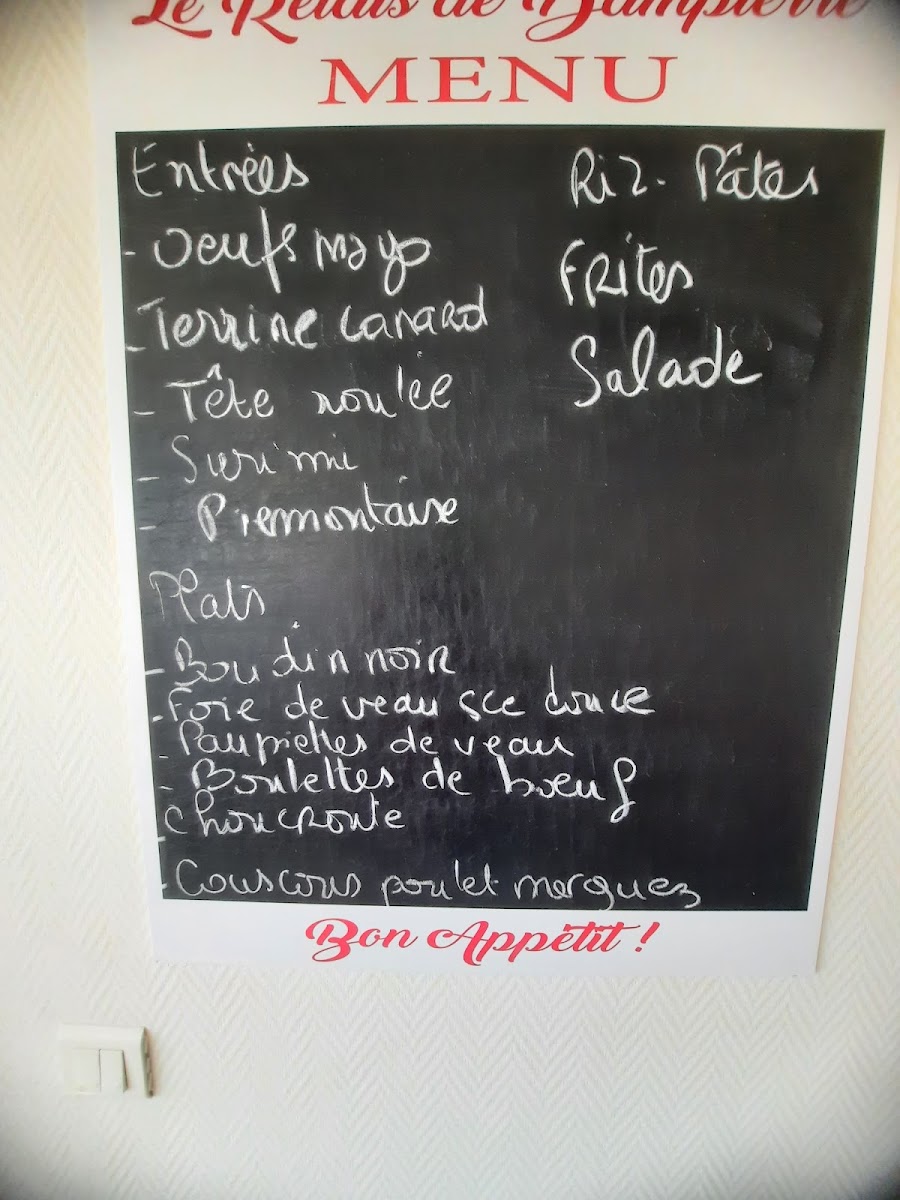 Le Relais de Dampierre
MENU
Entrées
- Oeufs mayo
- Terrine canard
- Tête roulée
- Surimi
- Piemontaise
Plats
- Boudin noir
- Foie de veau sce douce
- Paupiettes de veau
- Boulettes de boeuf
- Choucroute
- Couscous poulet merguez
Riz - Pâtes
Frites
Salade
Bon Appétit !